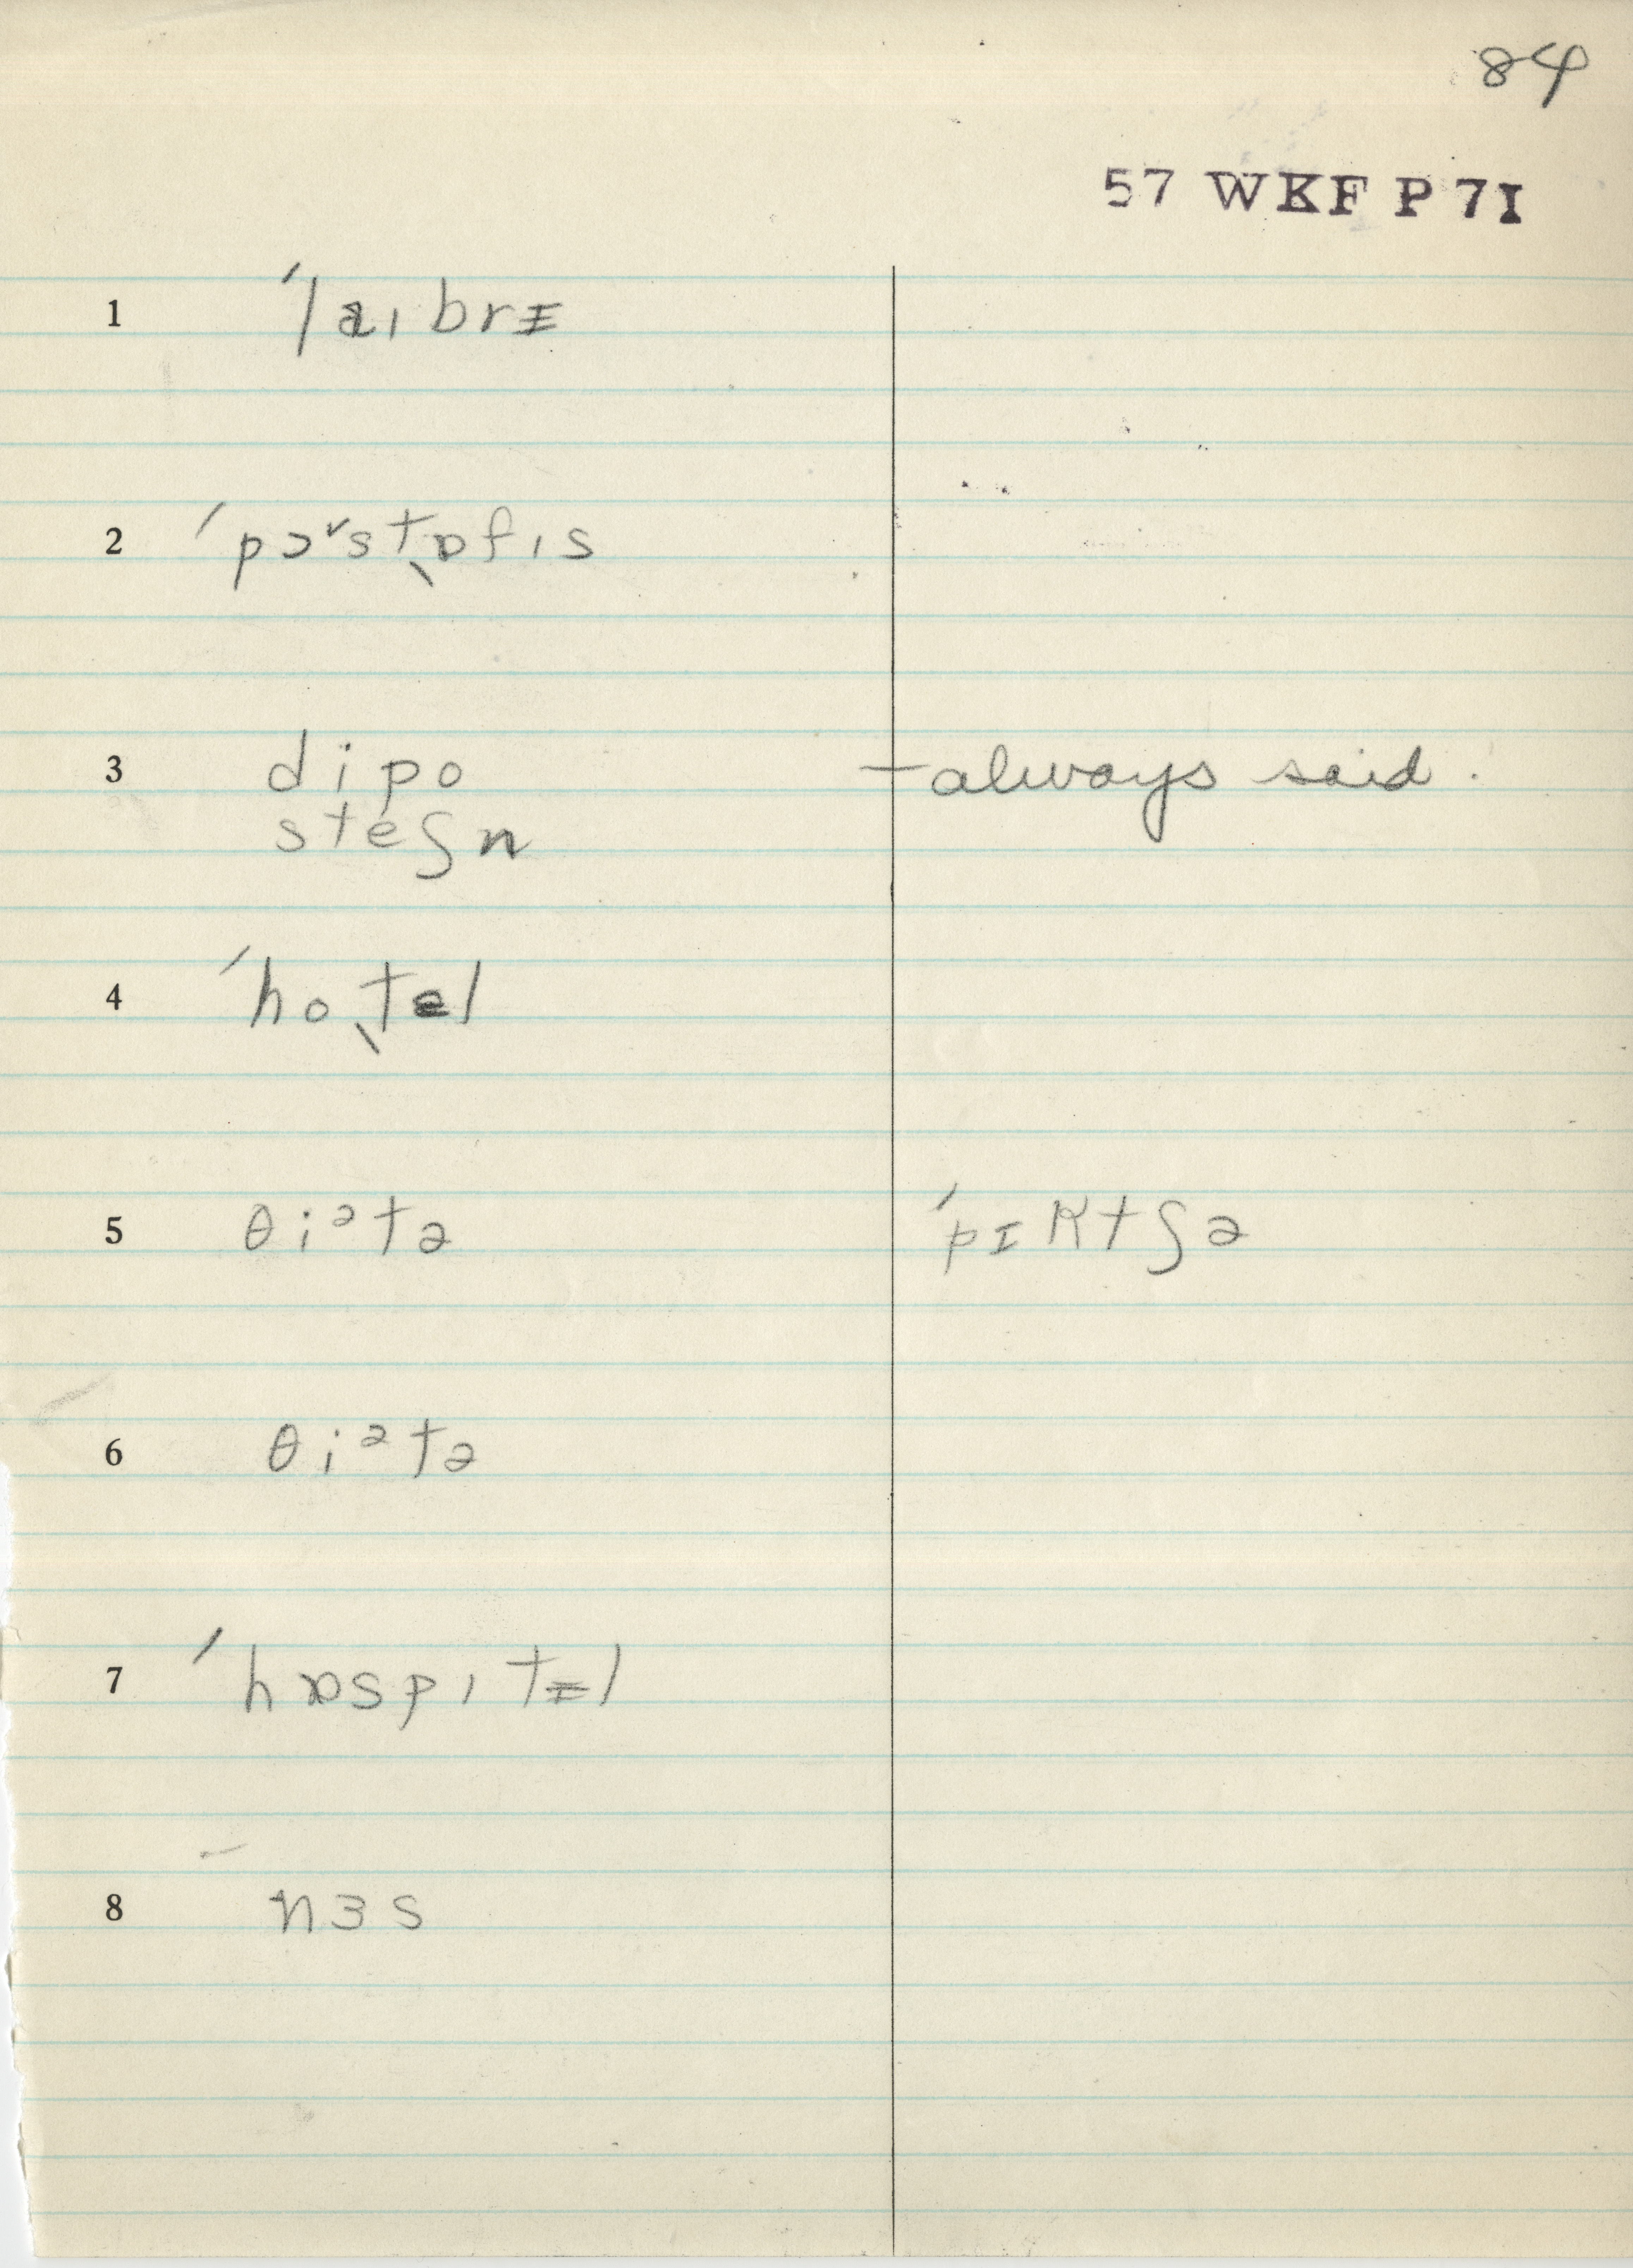 84
57 WKF P 7I
1 ˈlaɪbrɪ
2 ˈpɔ˅stˌɒfɪs
3 dipo — always said.
steʃn
4 ˈhoˌtɛl
5 θiᵊtə ˈpɪktʃə
6 θiᵊtə
7 ˈhɒspɪtɪl
8 nɜs